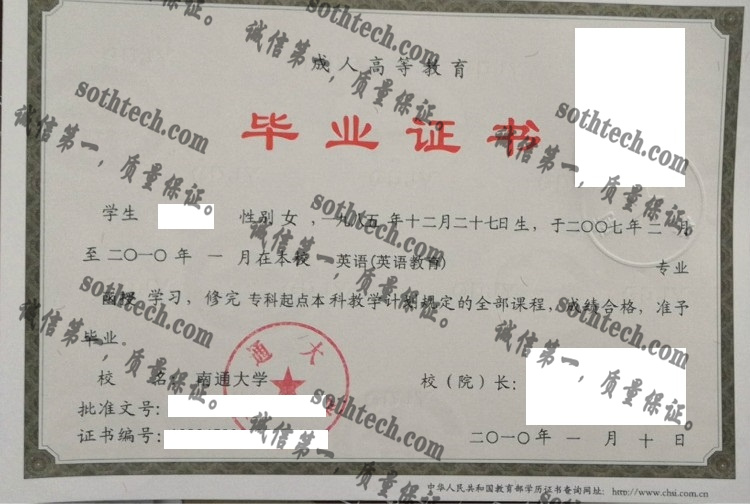 成人高等教育
毕业证书
学生 性别 女 ,一九八五 年十二月二十七日生,于二〇〇七年 二 月
至二〇一〇年 一 月在本校 英语(英语教育) 专业
函授 学习,修完 专科起点本科教学计划规定的全部课程,成绩合格,准予
毕业。
校 名: 南通大学 校(院)长:
批准文号:
证书编号: 二〇一〇年 一 月 十 日
中华人民共和国教育部学历证书查询网址: http://www.chsi.com.cn
通大
sothtech.com
诚信第一,质量保证。
sothtech.com
诚信第一,质量保证。
sothtech.com
诚信第一,质量保证。
sothtech.com
诚信第一,质量保证。
sothtech.com
诚信第一,质量保证。
sothtech.com
诚信第一,质量保证。
sothtech.com
诚信第一,质量保证。
sothtech.com
诚信第一,质量保证。
sothtech.com
诚信第一,质量保证。